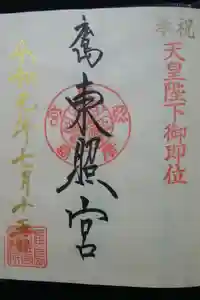 奉祝
天皇陛下御即位
東照宮
令和元年七月十五日